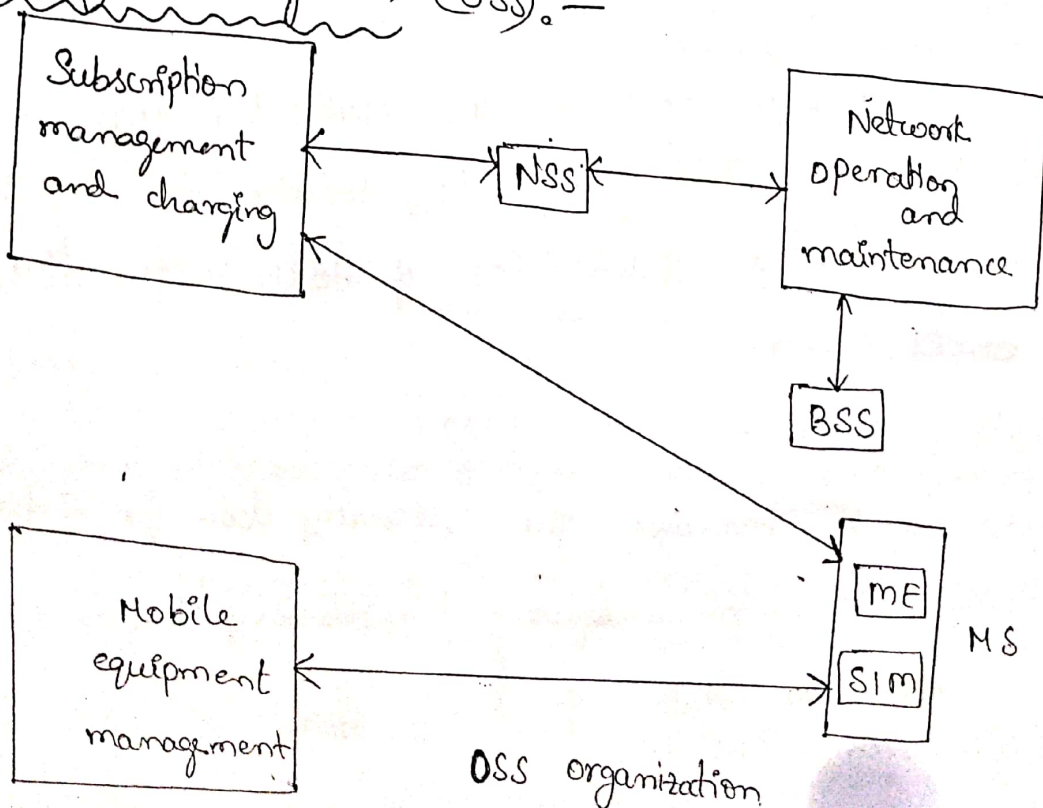 (OSS). —
Subscription
management
and charging
NSS
Network
operation
and
maintenance
BSS
ME
SIM
MS
Mobile
equipment
management
OSS organization